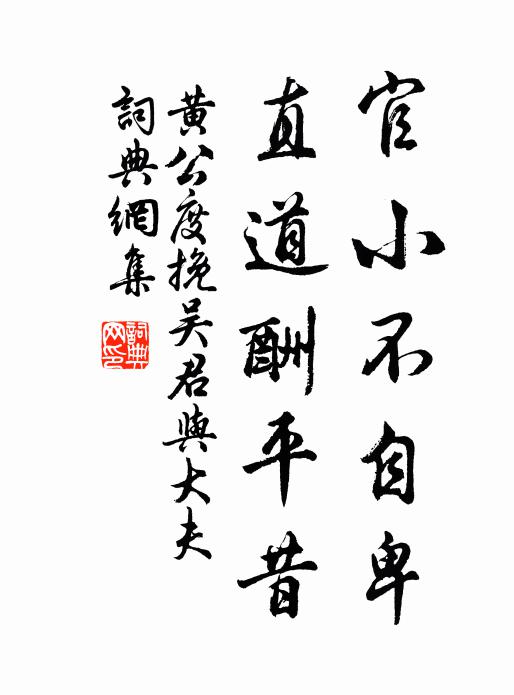 官小不自卑
直道酬平昔
黄公度挽吴君與大夫
詞典網集
詞典网印